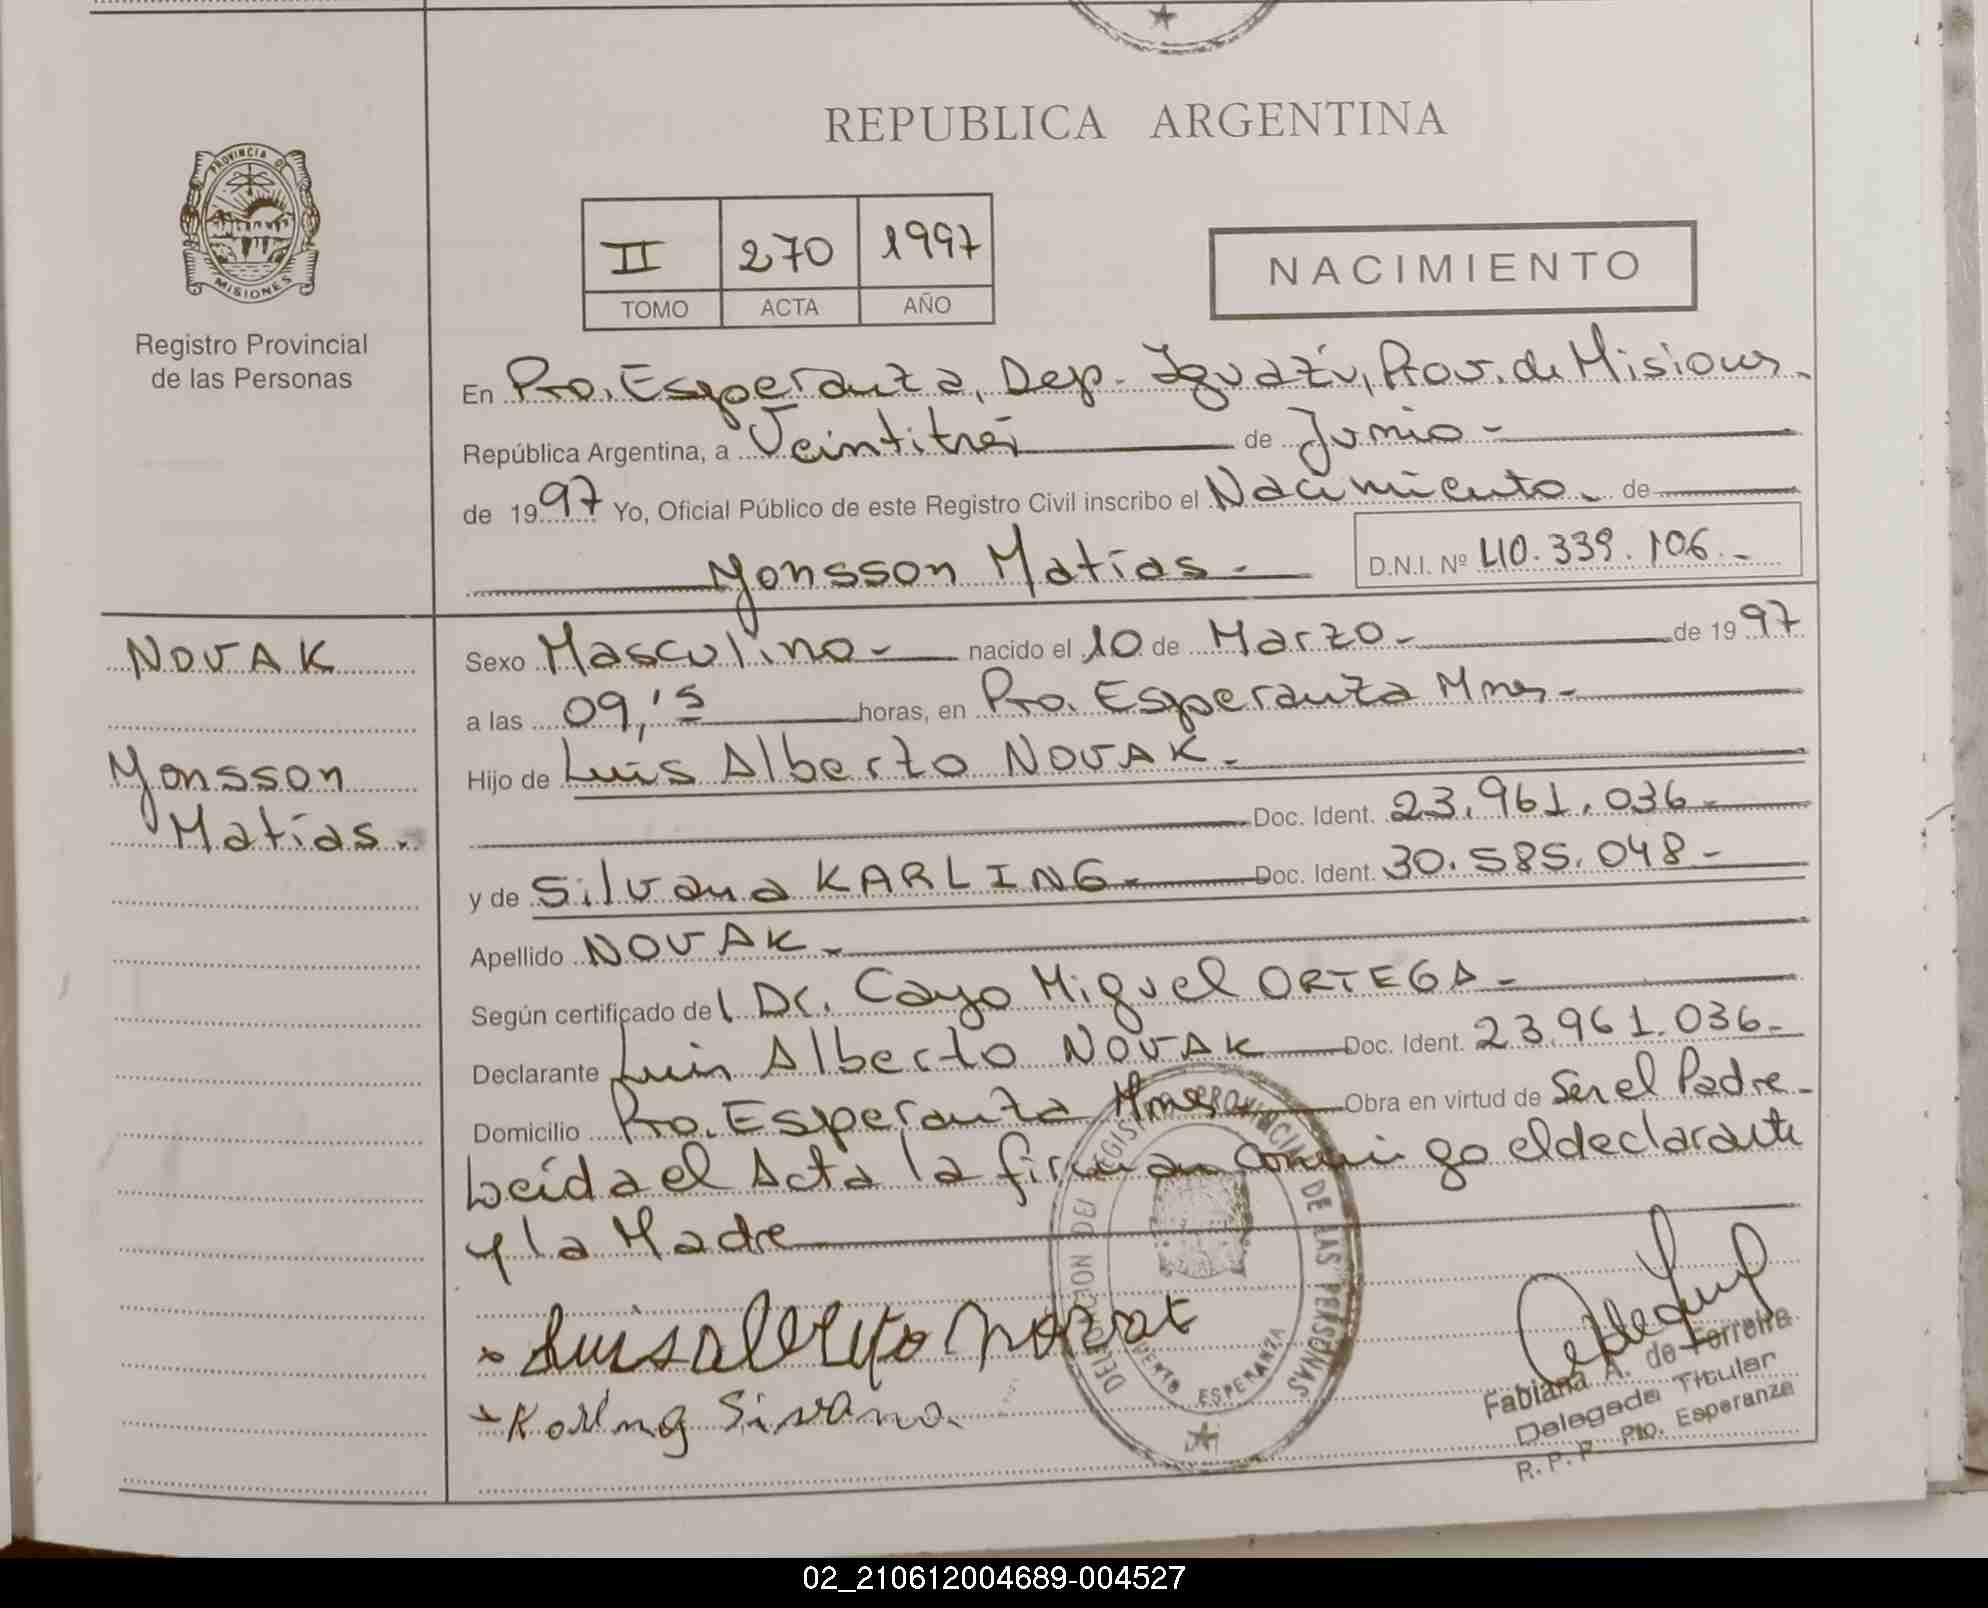 REPUBLICA ARGENTINA
PROVINCIA DE
MISIONES
Registro Provincial
de las Personas
II 270 1997
TOMO ACTA AÑO
NACIMIENTO
En Pto. Esperanza, Dep. Iguazú, Prov. de Misiones.
República Argentina, a Veintitrés de Junio -
de 1997 Yo, Oficial Público de este Registro Civil inscribo el Nacimiento. de
Yonsson Matías - D.N.I. Nº 40.339.106.-
NOVAK
Yonsson
Matías.
Sexo Masculino - nacido el 10 de Marzo - de 1997
a las 09,15 horas, en Pto. Esperanza Mnes -
Hijo de Luis Alberto NOVAK -
Doc. Ident. 23.961.036 -
y de Silvana KARLING - Doc. Ident. 30.585.048 -
Apellido NOVAK -
Según certificado del Dr. Cayo Miguel ORTEGA -
Declarante Luis Alberto NOVAK Doc. Ident. 23.961.036 -
Domicilio Pto. Esperanza Mnes. Obra en virtud de Ser el Padre -
Leída el Acta la firman conmigo el declarante
y la Madre
DELEGACION DEL REGISTRO PROVINCIAL DE LAS PERSONAS
PUERTO ESPERANZA
x Luis alberto novak
x Karling Sivana.
Fabiana A. de Ferreira
Delegada Titular
R. P. P. Pto. Esperanza
02_210612004689-004527